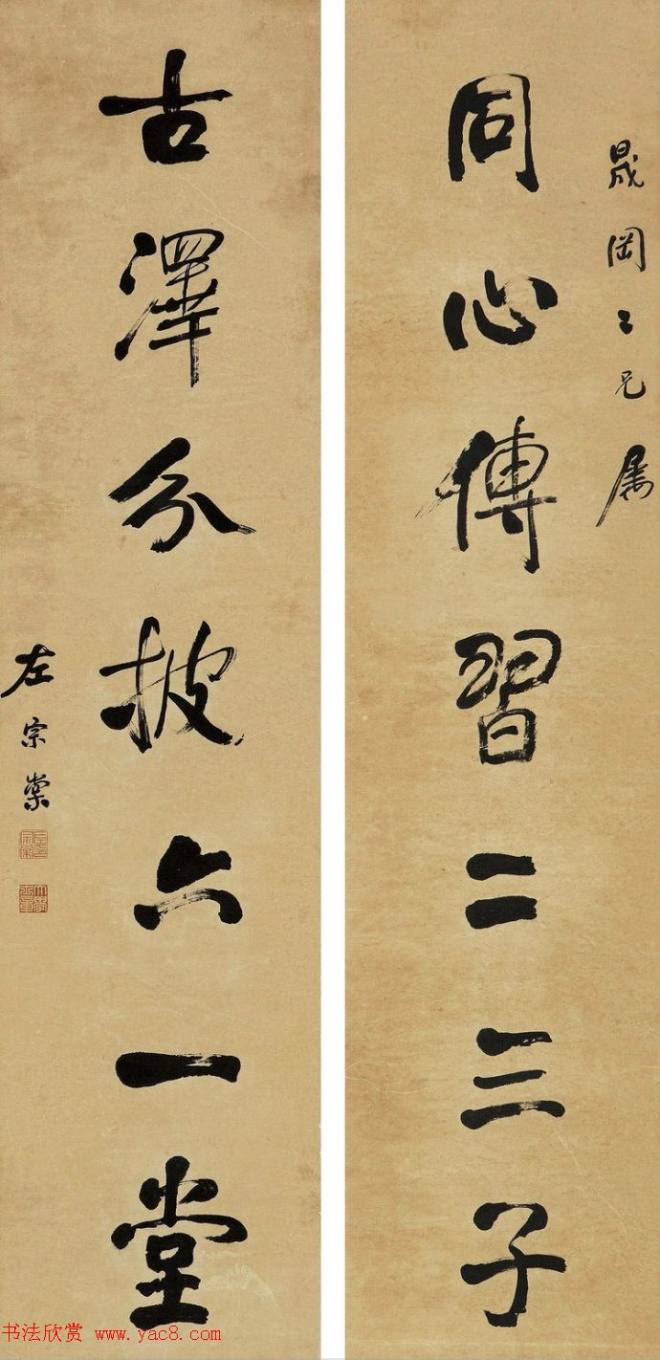 晟岡二兄屬
同心傳習二三子
古澤分披六一堂
左宗棠
书法欣赏 www.yac8.com